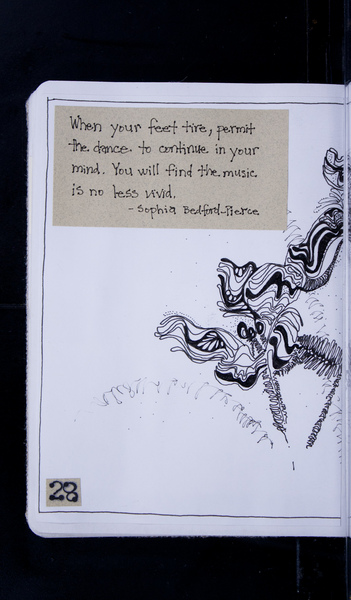 When your feet tire, permit
the dance to continue in your
mind. You will find the music
is no less vivid.
- Sophia Bedford-Pierce
28